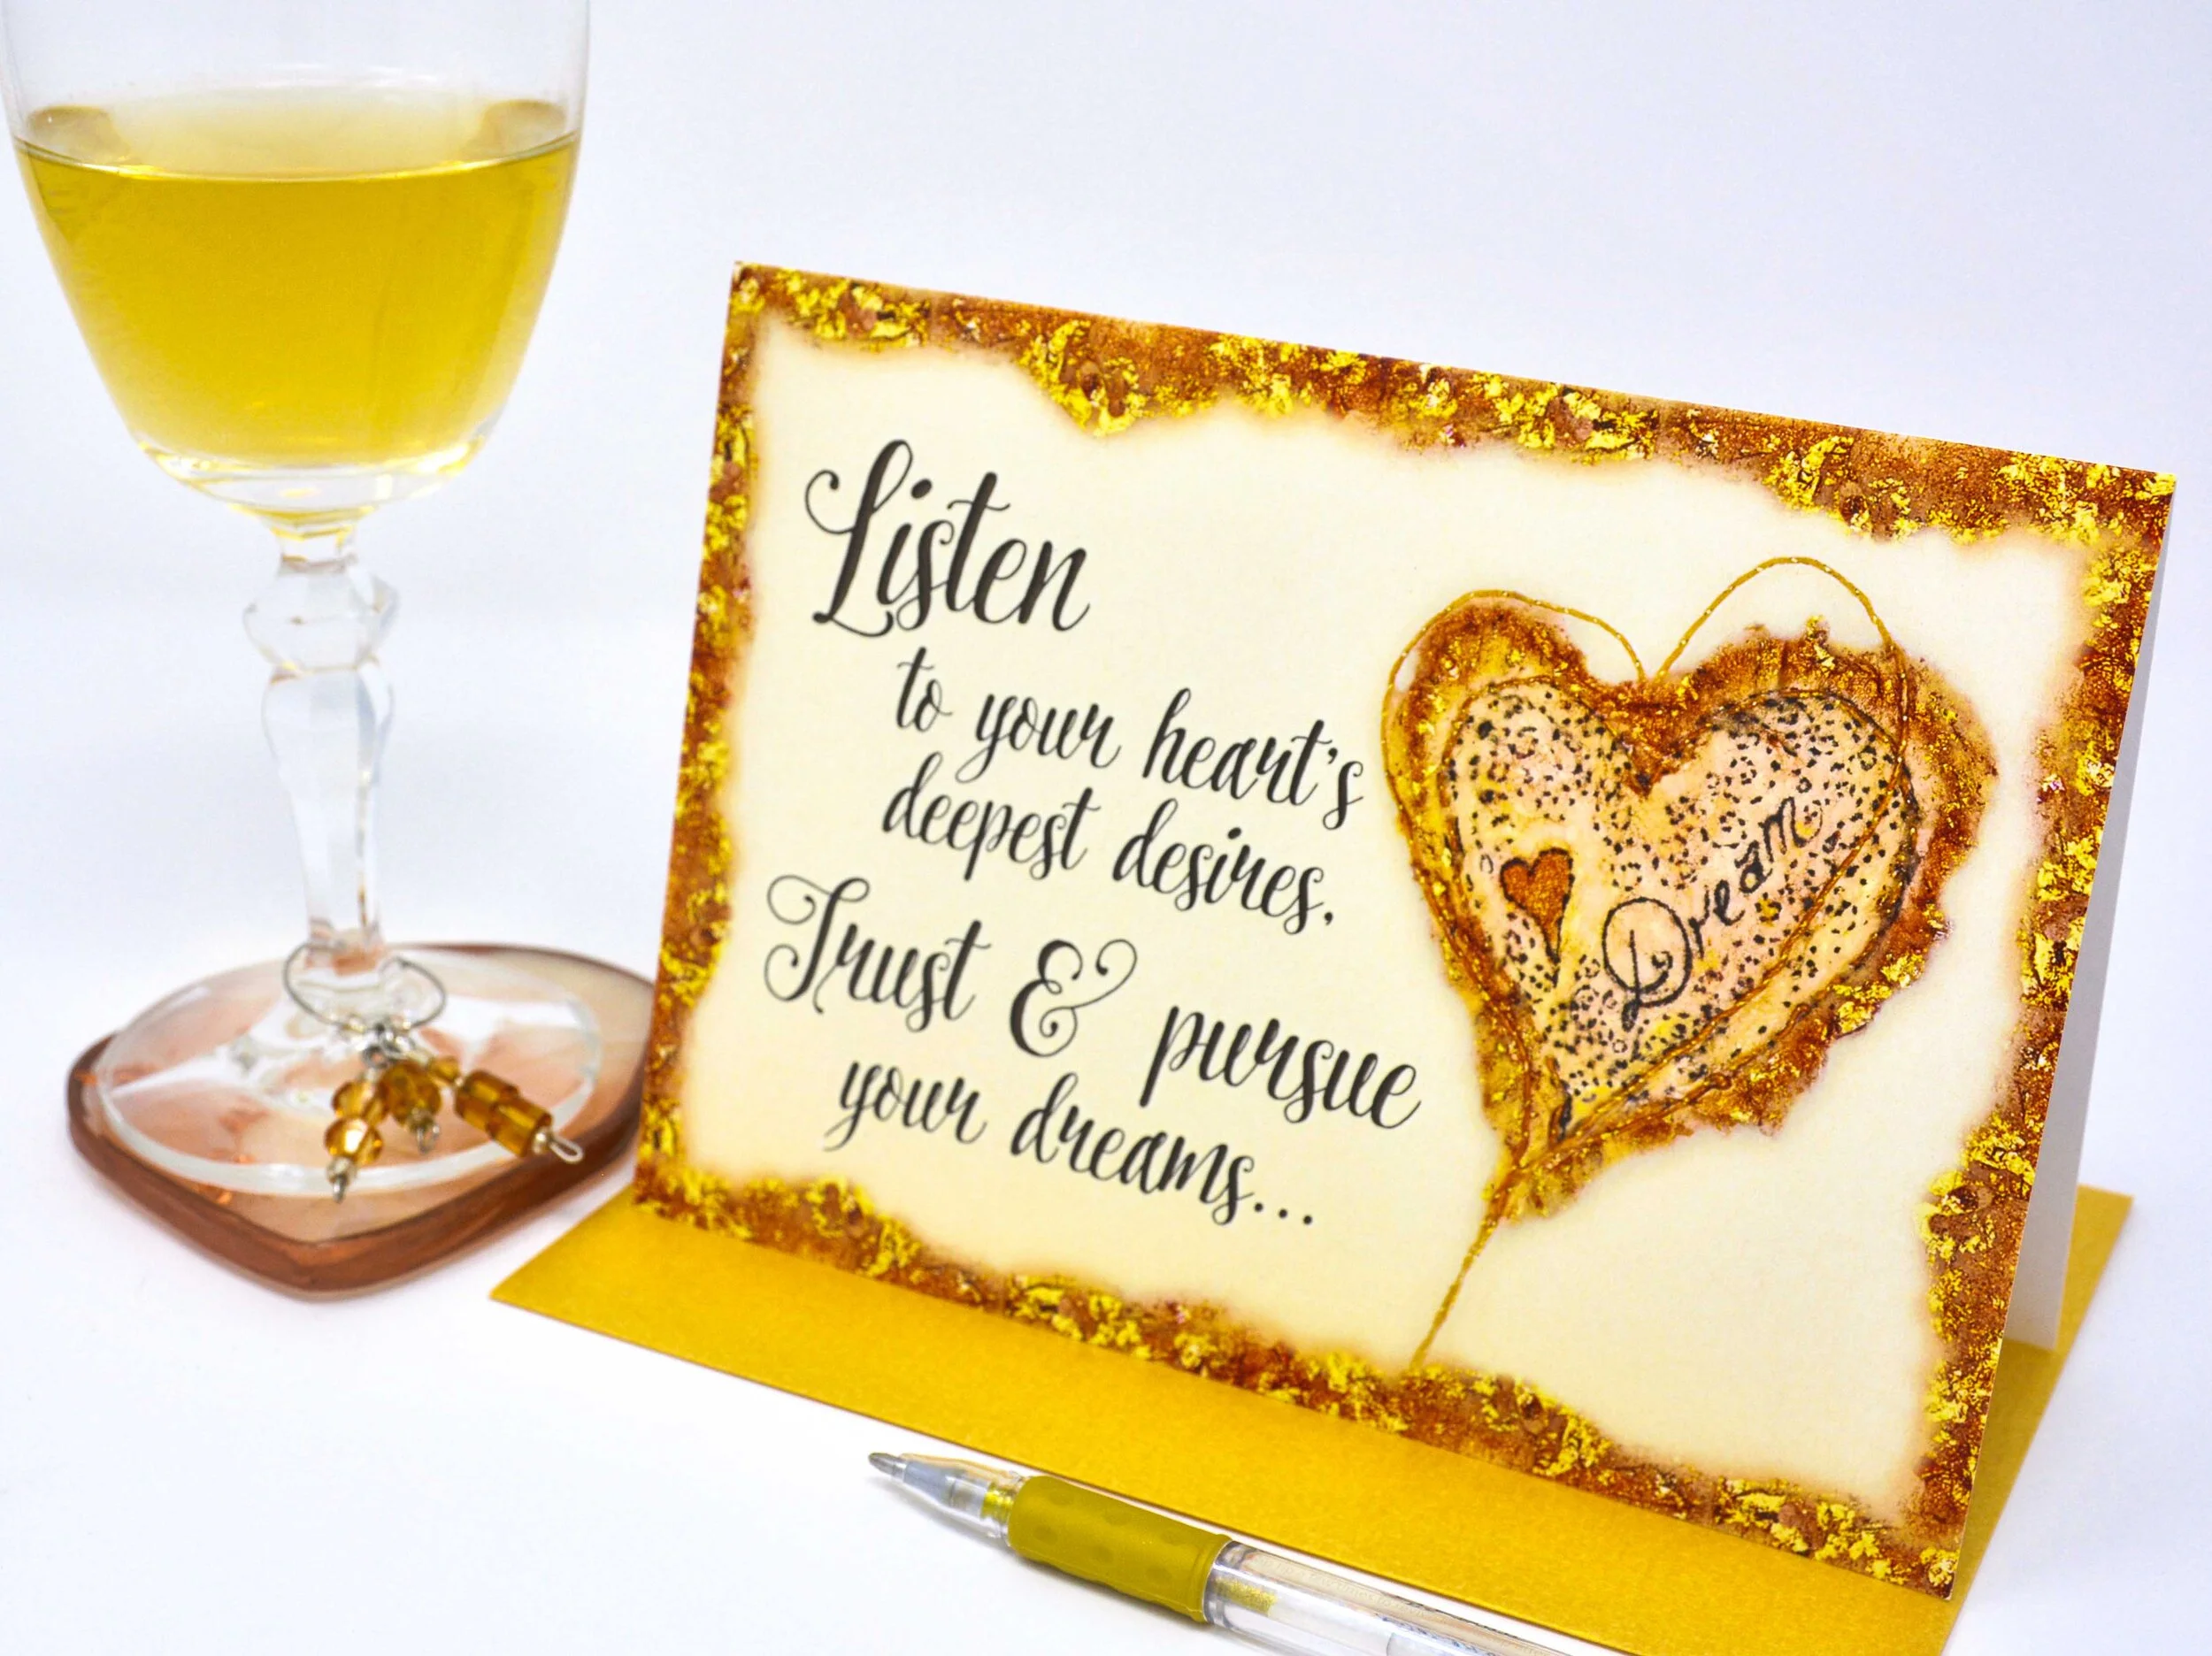 Listen
to your heart's
deepest desires,
Trust & pursue
your dreams...
Dream